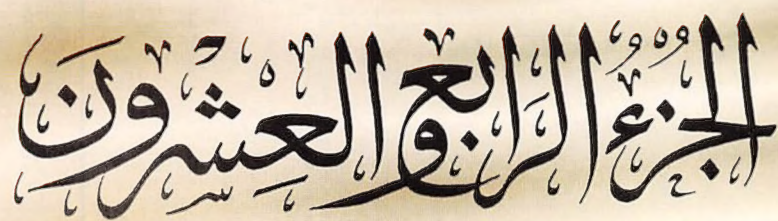 الجُزْءُ الرَّابِعُ وَالْعِشْرُونَ